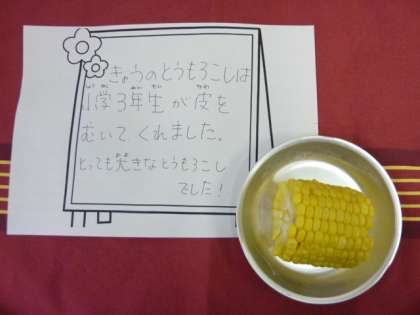 きょうのとうもろこしは
小学3年生が皮を
むいてくれました。
とっても大きなとうもろこし
でした!